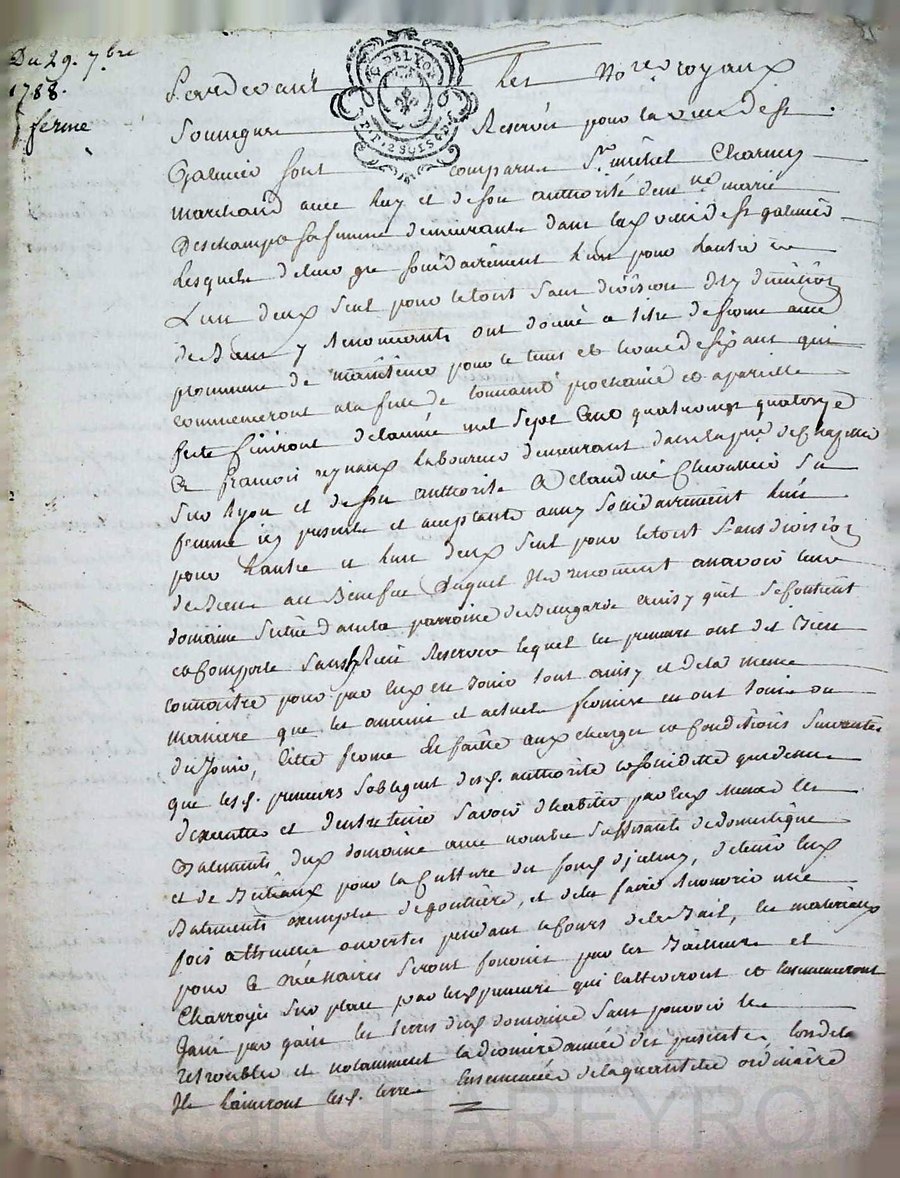 Du 29. 7bre
1788.
ferme
G DE LYON
Pardevant Les Nore royaux
Soussignés Reservés pour la ville de st
Galmier sont comparu Sr. michel Charmy
marchand avec luy et de son authorité demlle marie
Deschamps sa femme demeurants dans la ville de st galmier
Lesquels de leur gré solidairement l'un pour l'autre et
L'un d'eux seul pour le tout sans division ny discution
de Biens y renonceants ont donné a titre de ferme avec
promesse de maintenir pour le tems et terme de six ans qui
commenceront a la fete de toussaint prochaine et a pareille
fete finiront de lannée mil sept cent quatrevingt quatorze
A francois reynaux laboureur demeurant dans la psse de Chazelles
sur lyon et de son authorité A claudine Chevallier sa
femme icy presents et acceptants aussy solidairement l'un
pour l'autre et l'un d'eux seul pour le tout sans division
de Biens au Benefice duquel ils renoncent a savoir leur
domaine situé dans la parroisse de Bellegarde ainsy quil se contient
et comporte sans Rien Reserver lequel les preneurs ont dit bien
connoitre pour par eux en Jouir tout ainsy et de la meme
maniere que les anciens et actuels fermiers en ont Jouit ou
du Jouir, Cette ferme est faitte aux charges et conditions suivantes
que lesd. preneurs s'obligent desd. authorité et solidité que dessus
d'executer et d'entretenir savoir d'habiter par eux memes les
Batiments dud domaine avec nombre suffisants de domestique
et de Bestiaux pour la Culture des fonds d'iceluy, de tenir les
Batiments exempts de gouttiere, et de les faire recouvrir une
fois a thuille ouvertes pendant le cours de la Bail, les materiaux
pour ce nécéssaires seront fournis par les Bailleurs et
Charroyés sur place par les preneurs qui cultiveront et ensemenceront
gain par gain les terres dud domaine sans pouvoir les
retroubler et notamment la derniere année des presentes, lors de la
Ils laisseront lesd. terres Ensemencées de la quantité ordinaire
Pascal CHAREYRON